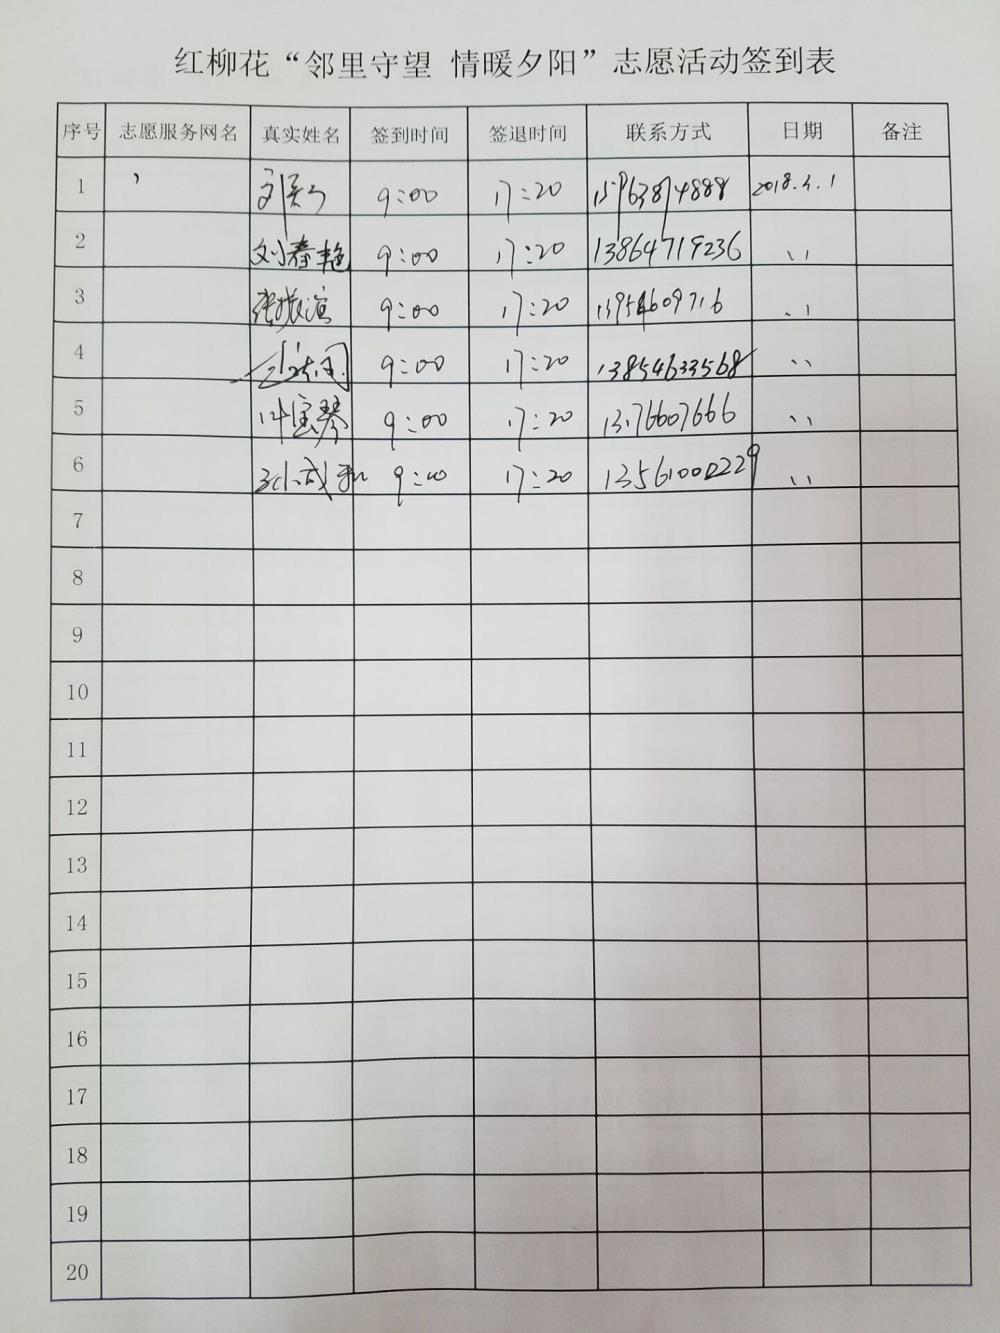 红柳花“邻里守望 情暖夕阳”志愿活动签到表
序号 志愿服务网名 真实姓名 签到时间 签退时间 联系方式 日期 备注
1 9:00 17:20 15963874888
2 刘春艳 9:00 17:20 13864719236 〃
3 张振滨 9:00 17:20 13954609716 〃
4 9:00 17:20 13854633568 〃
5 叶宝琴 9:00 17:20 〃
6 9:00 17:20 13561000229 〃
7
8
9
10
11
12
13
14
15
16
17
18
19
20